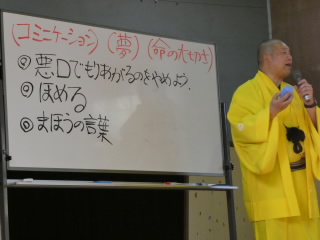 (コミニケーション)(夢)(命の大切さ)
◎悪口でもりあがるのをやめよう.
◎ほめる
◎まほうの言葉